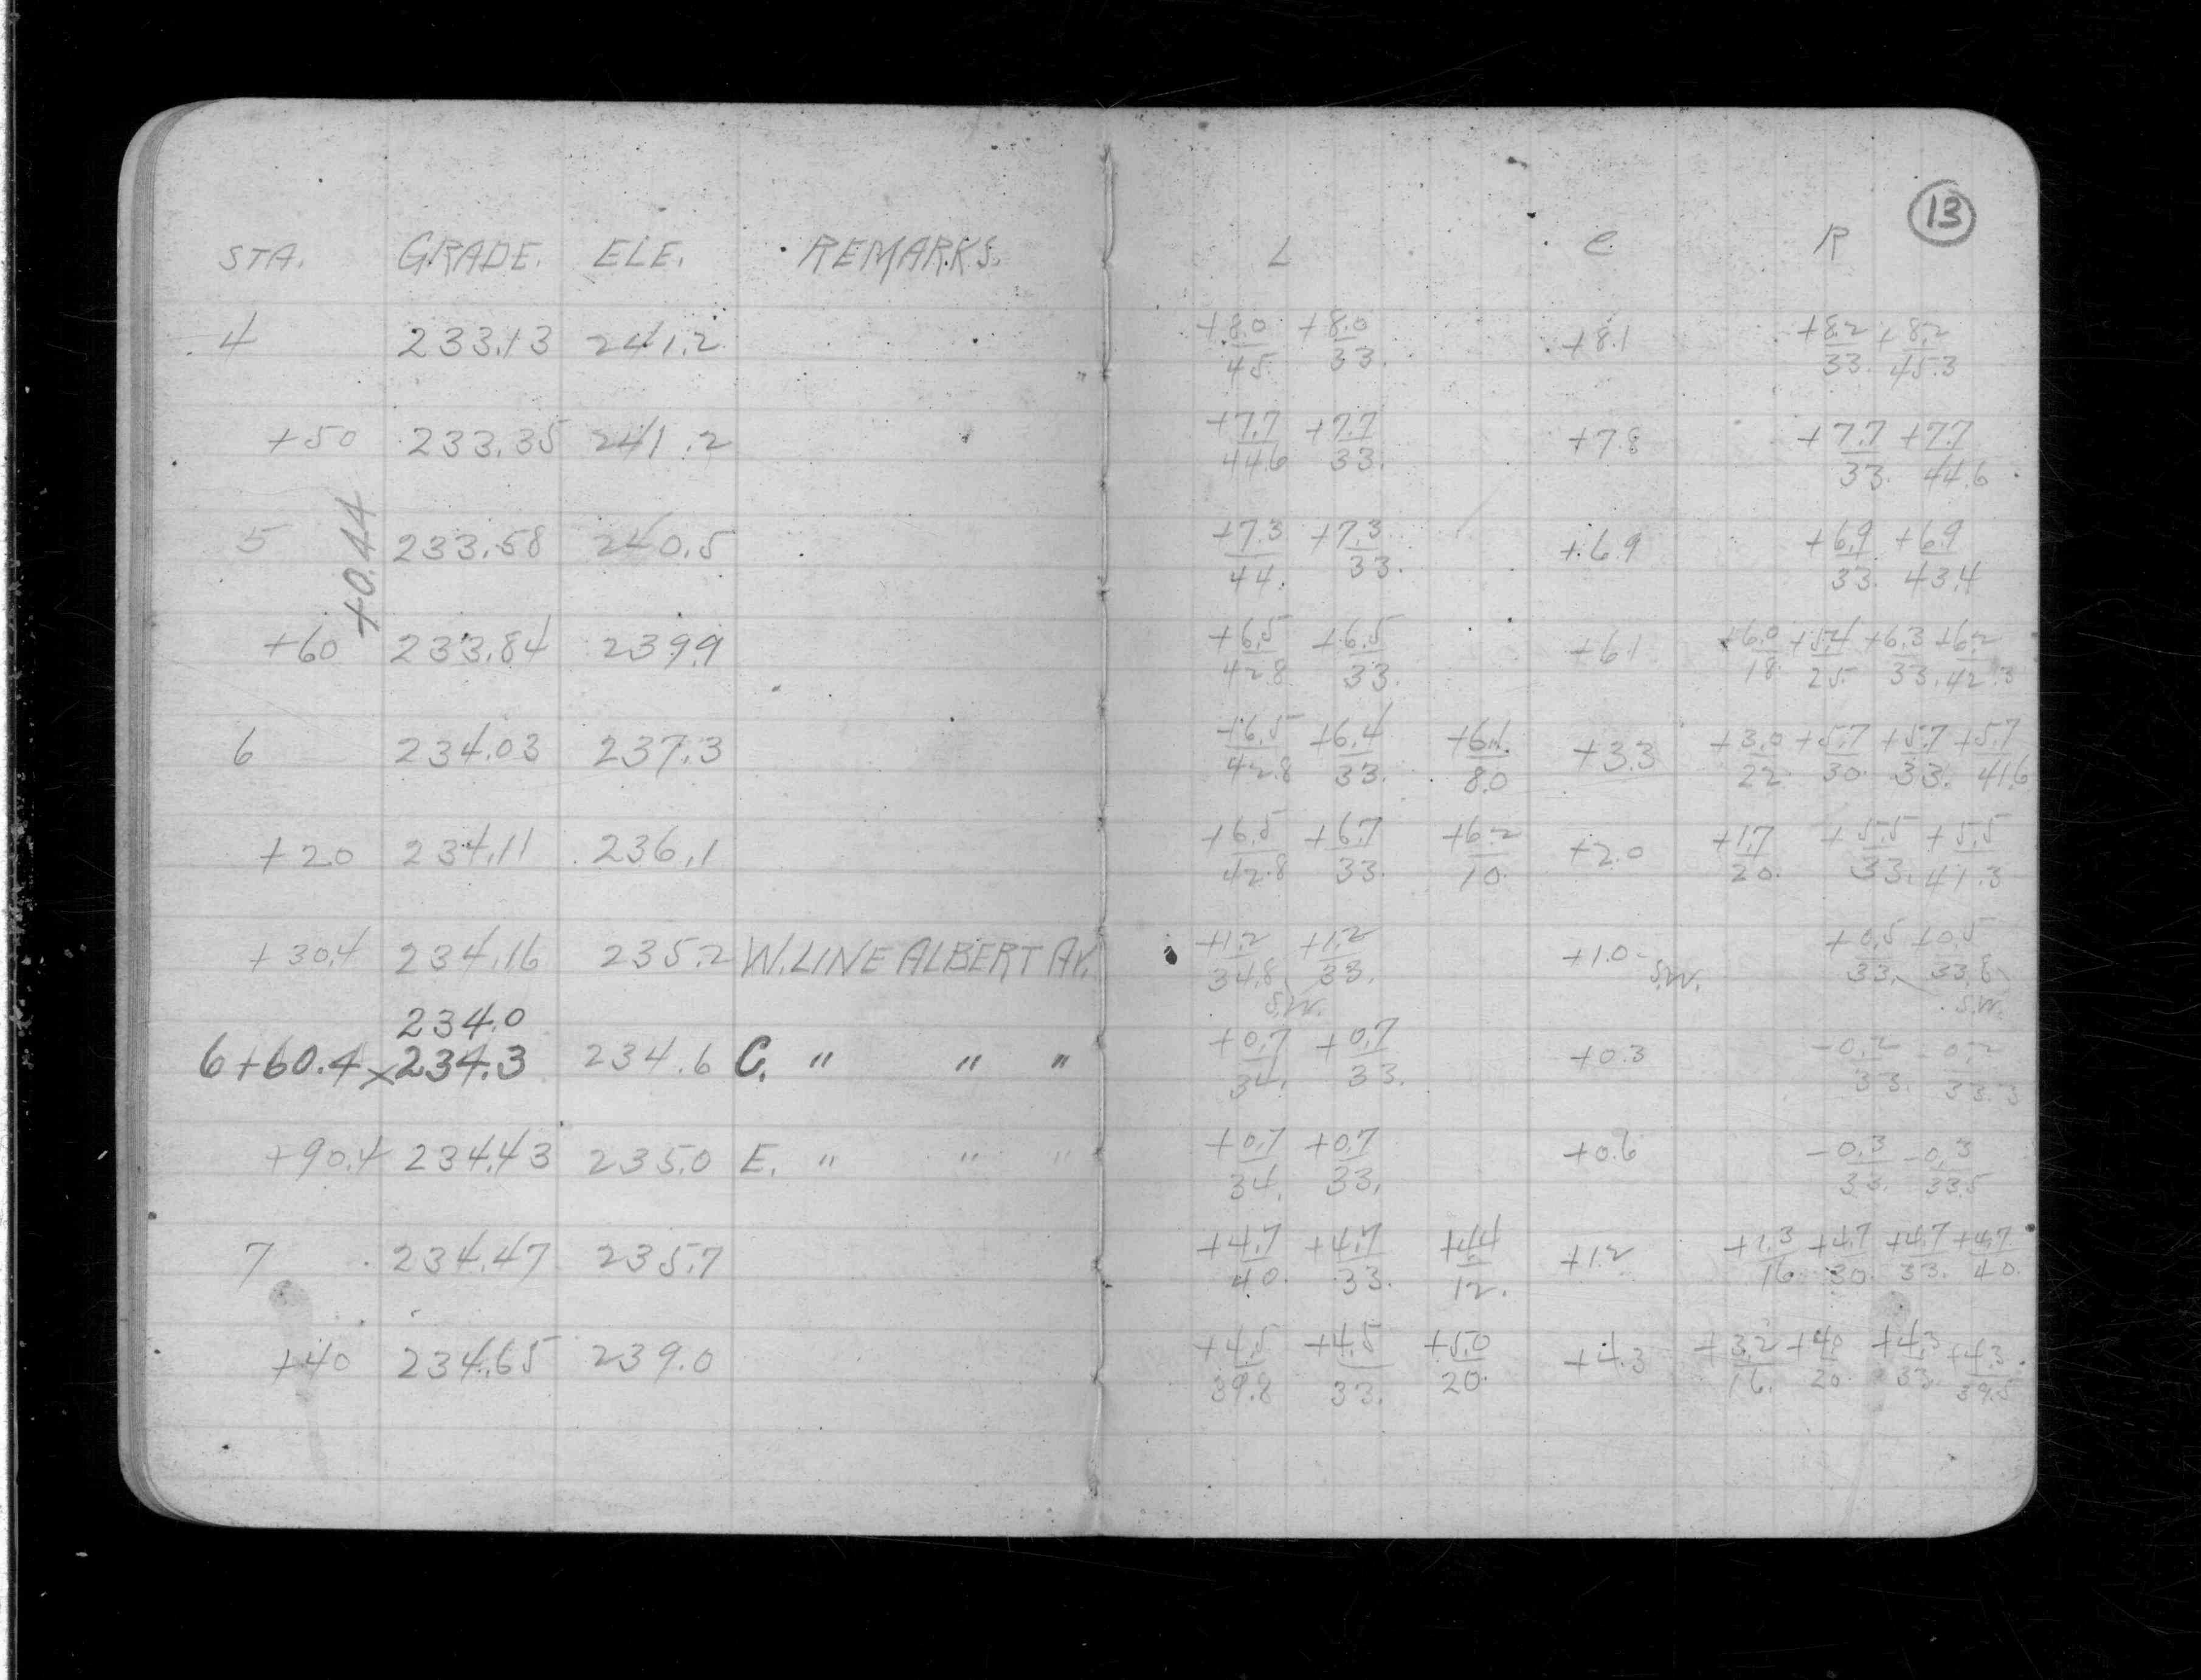 13
STA. GRADE. ELE. REMARKS. L C R
4 233.13 241.2 +8.0/45. +8.0/33. +8.1 +8.2/33. +8.2/45.3
+50 233.35 241.2 +7.7/44.6 +7.7/33. +7.8 +7.7/33. +7.7/44.6
+0.44
5 233.58 240.5 +7.3/44. +7.3/33. +6.9 +6.9/33. +6.9/43.4
+60 233.84 239.9 +6.5/42.8 +6.5/33. +6.1 +6.0/18. +5.4/25 +6.3/33. +6.2/42.3
6 234.03 237.3 +6.5/42.8 +6.4/33. +6.1/8.0 +3.3 +3.0/22 +5.7/30. +5.7/33. +5.7/41.6
+20 234.11 236.1 +6.5/42.8 +6.7/33. +6.2/10. +2.0 +1.7/20. +5.5/33. +5.5/41.3
+30.4 234.16 235.2 W. LINE ALBERT AV. +1.2/34.8 +1.2/33. +1.0 - S.W. +0.5/33. +0.5/33.8
S.W. S.W.
234.0
6+60.4 x 234.3 234.6 C. " " " +0.7/34. +0.7/33. +0.3 -0.2/33. -0.2/33.3
+90.4 234.43 235.0 E. " " " +0.7/34. +0.7/33. +0.6 -0.3/33. -0.3/33.5
7 234.47 235.7 +4.7/40. +4.7/33. +4.4/12. +1.2 +1.3/16 +4.7/30. +4.7/33. +4.7/40.
+40 234.65 239.0 +4.5/39.8 +4.5/33. +5.0/20. +4.3 +3.2/16. +4.0/20. +4.3/33. +4.3/39.5